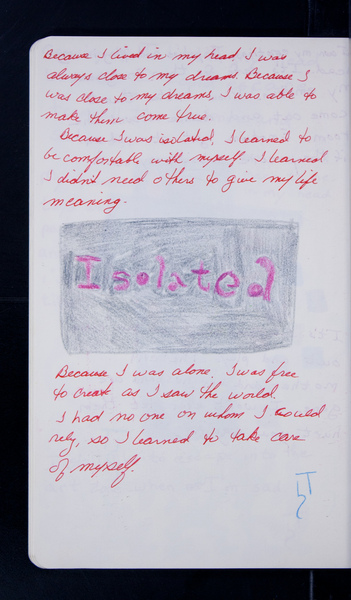 Because I lived in my head, I was
always close to my dreams. Because I
was close to my dreams, I was able to
make them come true.
Because I was isolated, I learned to
be comfortable with myself. I learned
I didn't need others to give my life
meaning.
Isolated
Because I was alone, I was free
to create as I saw the world.
I had no one on whom I could
rely, so I learned to take care
of myself.